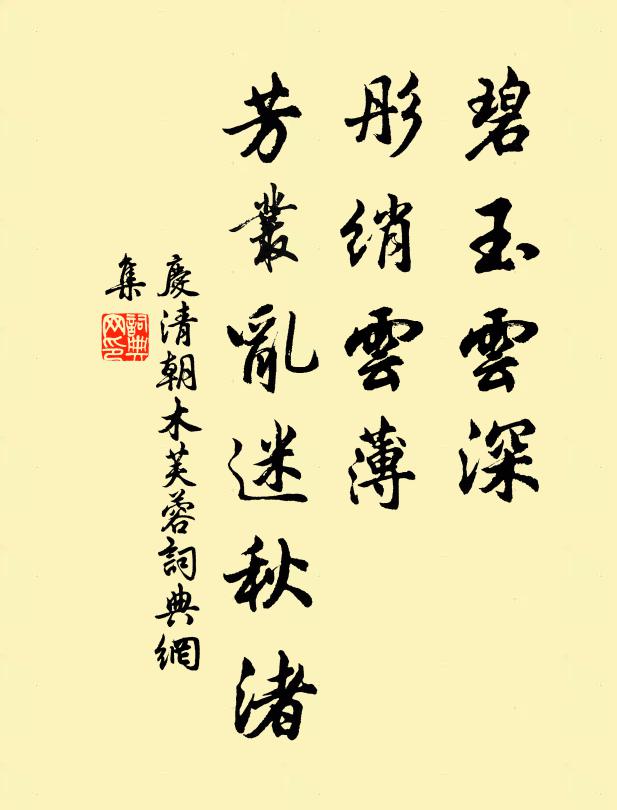 碧玉雲深
彤綃雲薄
芳叢亂迷秋渚
慶清朝木芙蓉詞典網
集
詞典
网印